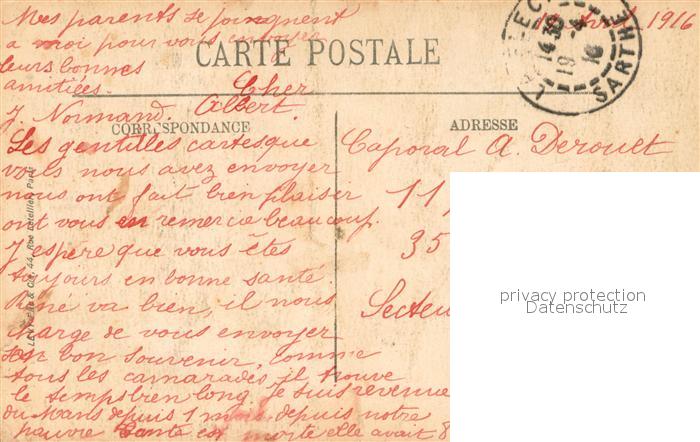 Mes parents se joignent
a moi pour vous envoyer
leurs bonnes
amitiées.
J. Normand.
1916
SARTHE
CARTE POSTALE
Cher
Albert.
CORRESPONDANCE
Les gentilles cartes que
vous nous avez envoyer
nous ont fait bien plaisir
ont vous en remercie beaucoup.
J'espère que vous êtes
toujours en bonne santé
René va bien, il nous
charge de vous envoyer
son bon souvenir, comme
tous les camarades il trouve
le temps bien long. Je suis revenue
du Mans depuis 1 mois depuis notre
pauvre tante est morte elle avait 8
ADRESSE
Caporal A. Derouet
11
35
Secteu
privacy protection
Datenschutz